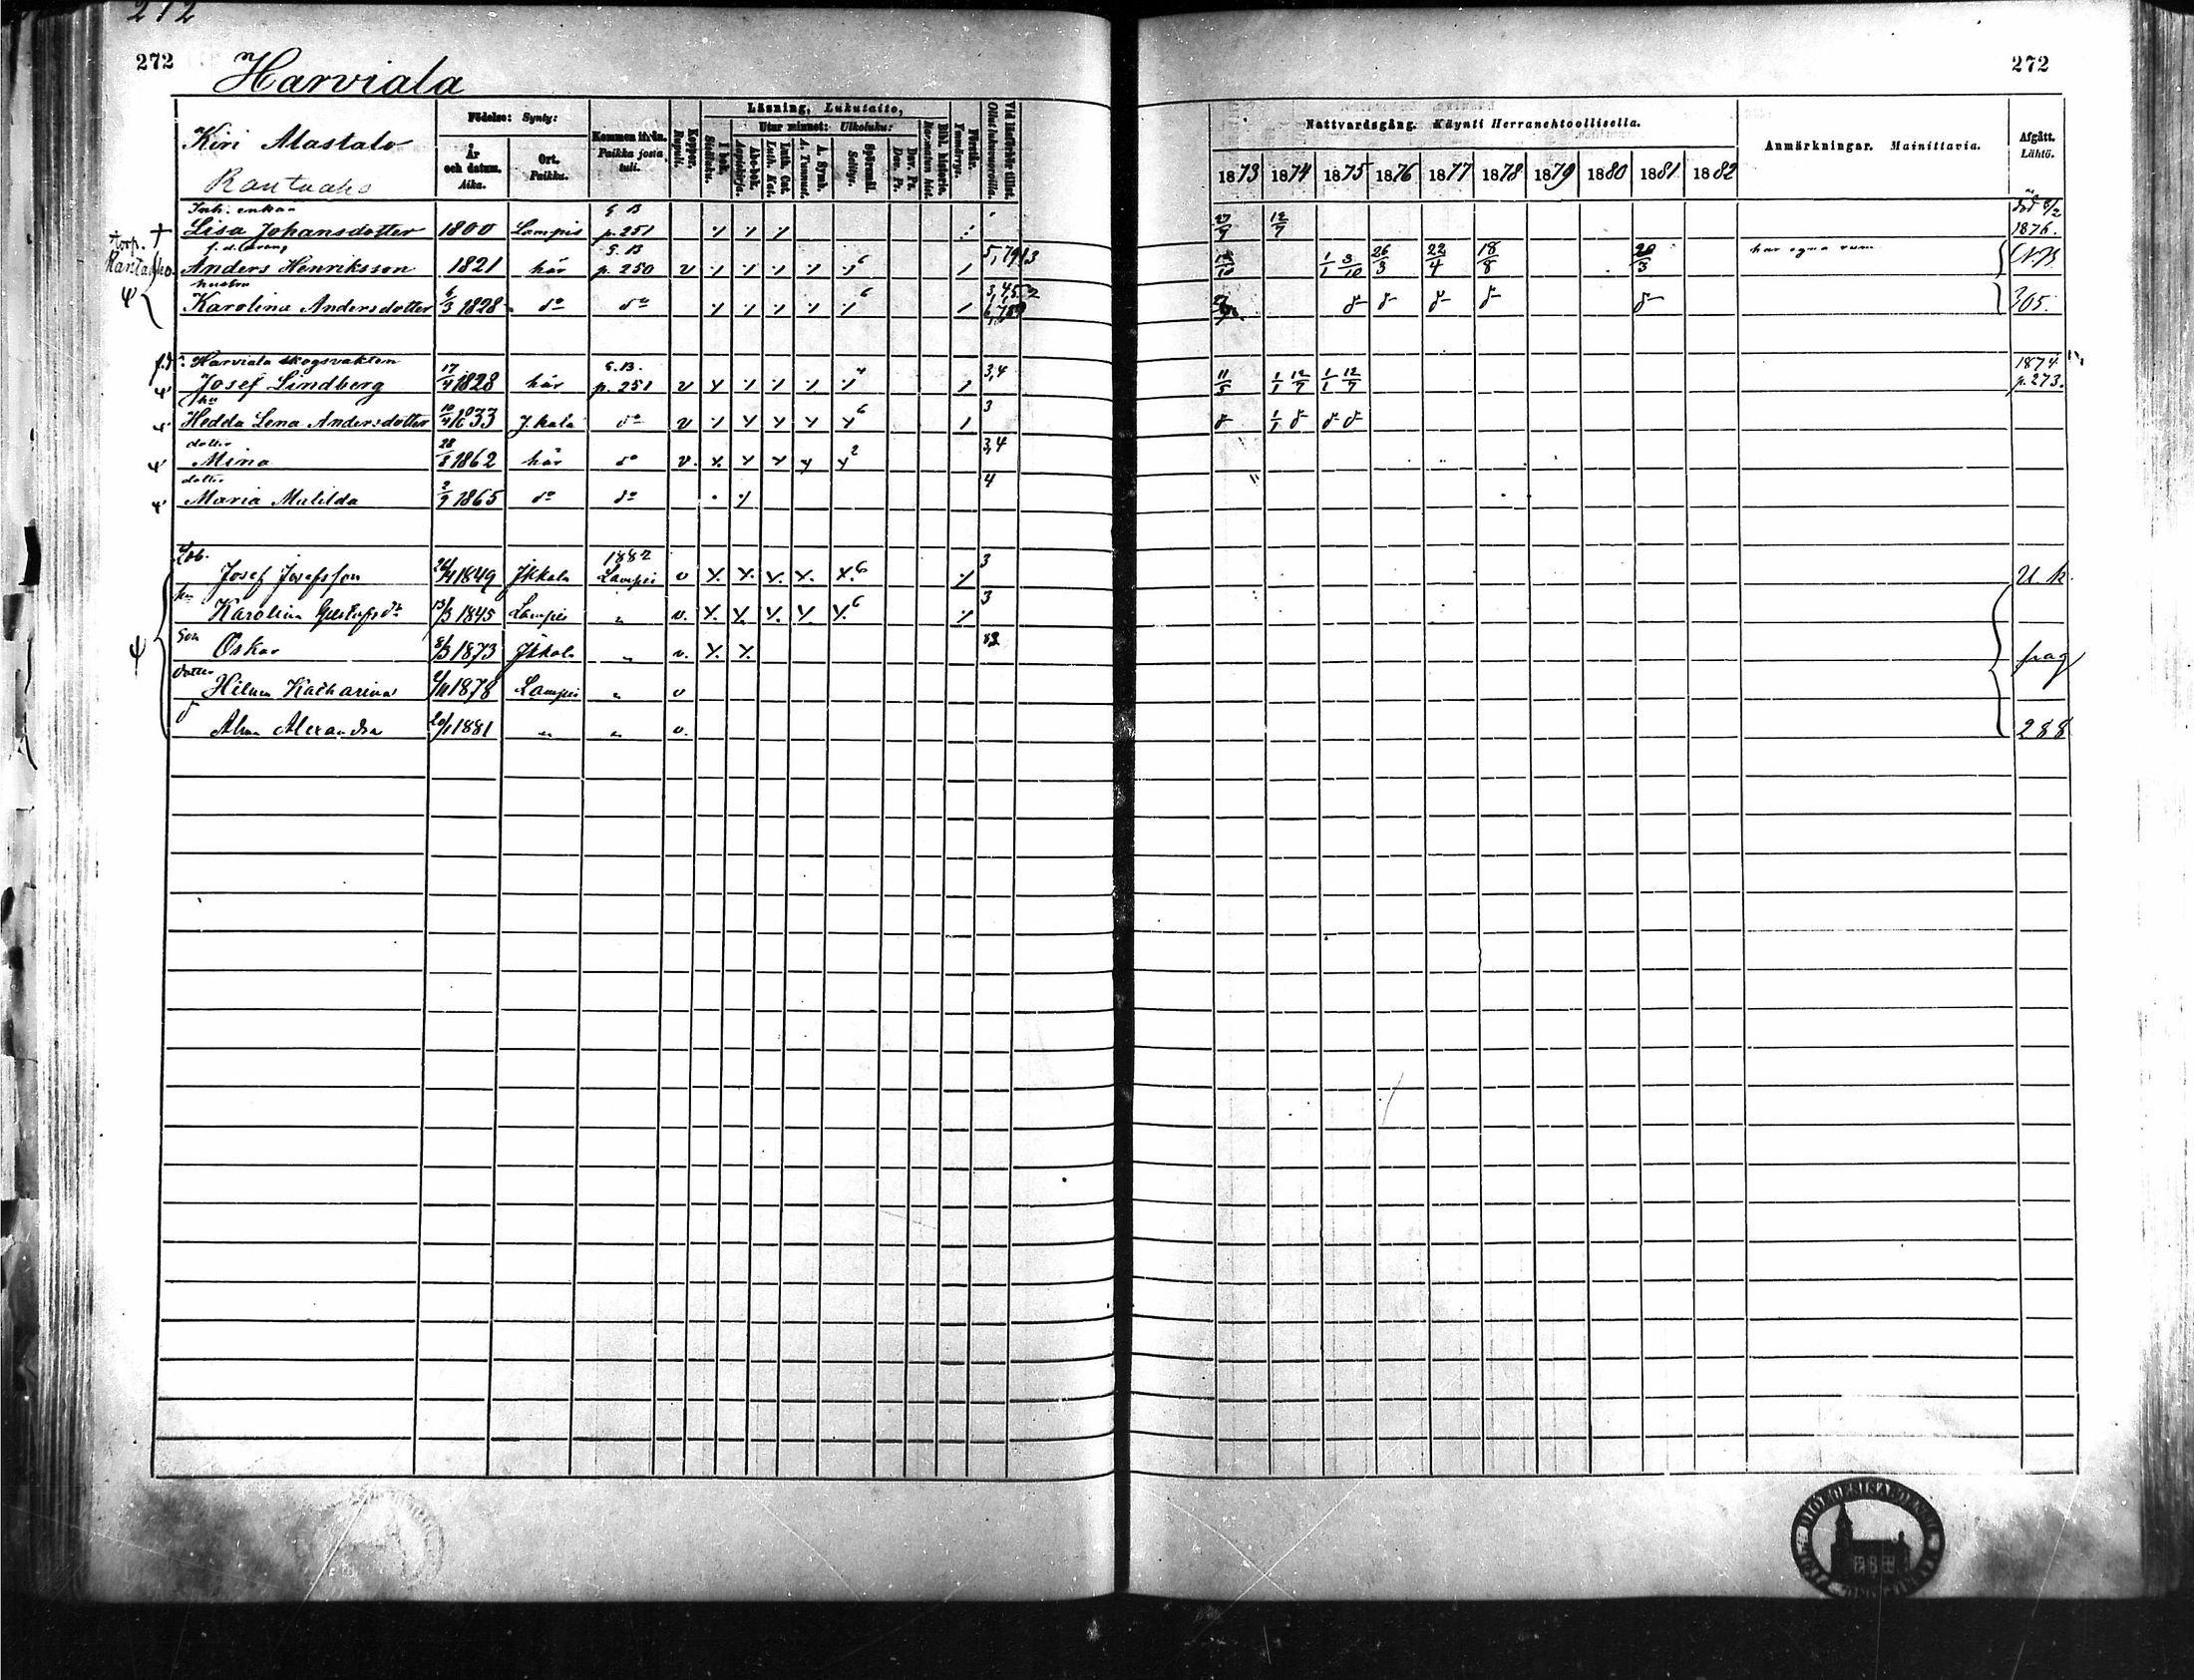 272
272 Harviala 272
Kiri Mastalo
Rantaaho
Födelse: Synty:
År och datum. Aika.
Ort. Paikka.
Kommen ifrån. Paikka josta tuli.
Koppor. Rupuli.
Läsning, Lukutaito,
I bok. Sisäluku.
Utur minnet: Ulkoluku:
Ab-bok. Aapiskirja.
Luth. Cat. Luth. Kat.
A. Symb. A. Tunnust.
Spörsmål. Selitys.
Dav. Ps. Dav. Ps.
Bibl. historia. Raamatun hist.
Förstår. Ymmärrys.
Vid läsförhör tillst. Ollut lukuvuoroilla.
Nattvardsgång. Käynti Herranehtoollisella.
1873 1874 1875 1876 1877 1878 1879 1880 1881 1882
Anmärkningar. Mainittavia.
Afgått. Lähtö.
Inh. enkan G B död 8/2
† Lisa Johansdotter 1800 Lampis p. 251 27/9 12/7 1876.
torp. Rantaaho
G. B
Anders Henriksson 1821 här p. 250 v 6 5,79 13 1/1 3/10 26/3 22/4 18/8 20/3 har egna rum
hustru
Karolina Andersdotter 6/3 1828 do do 6 305.
f.d. Harviala skogsvakten G. B. 1874
Josef Lindberg 17/4 1828 här p. 251 v 3,4 11/5 1/1 12/7 1/1 12/7 p. 273.
hu
Hedda Lena Andersdotter 10/4 1833 J.kala do v 6 3 1/1
dotter
Mina 28/8 1862 här do v. 2 3,4
dotter
Maria Matilda 2/9 1865 do do 4
1882
Josef Josefsson 1849 Jkkala Lampis v 6 3 U k.
hu
Karolina Gustafsdr 13/3 1845 Lampis „ v. 6 3
Son
Oskar 8/3 1873 Jkkala „ v. pag
Dotter
Hilma Katharina 1878 Lampis „ v
d
Alma Alexandra 20/1 1881 „ „ v. 288